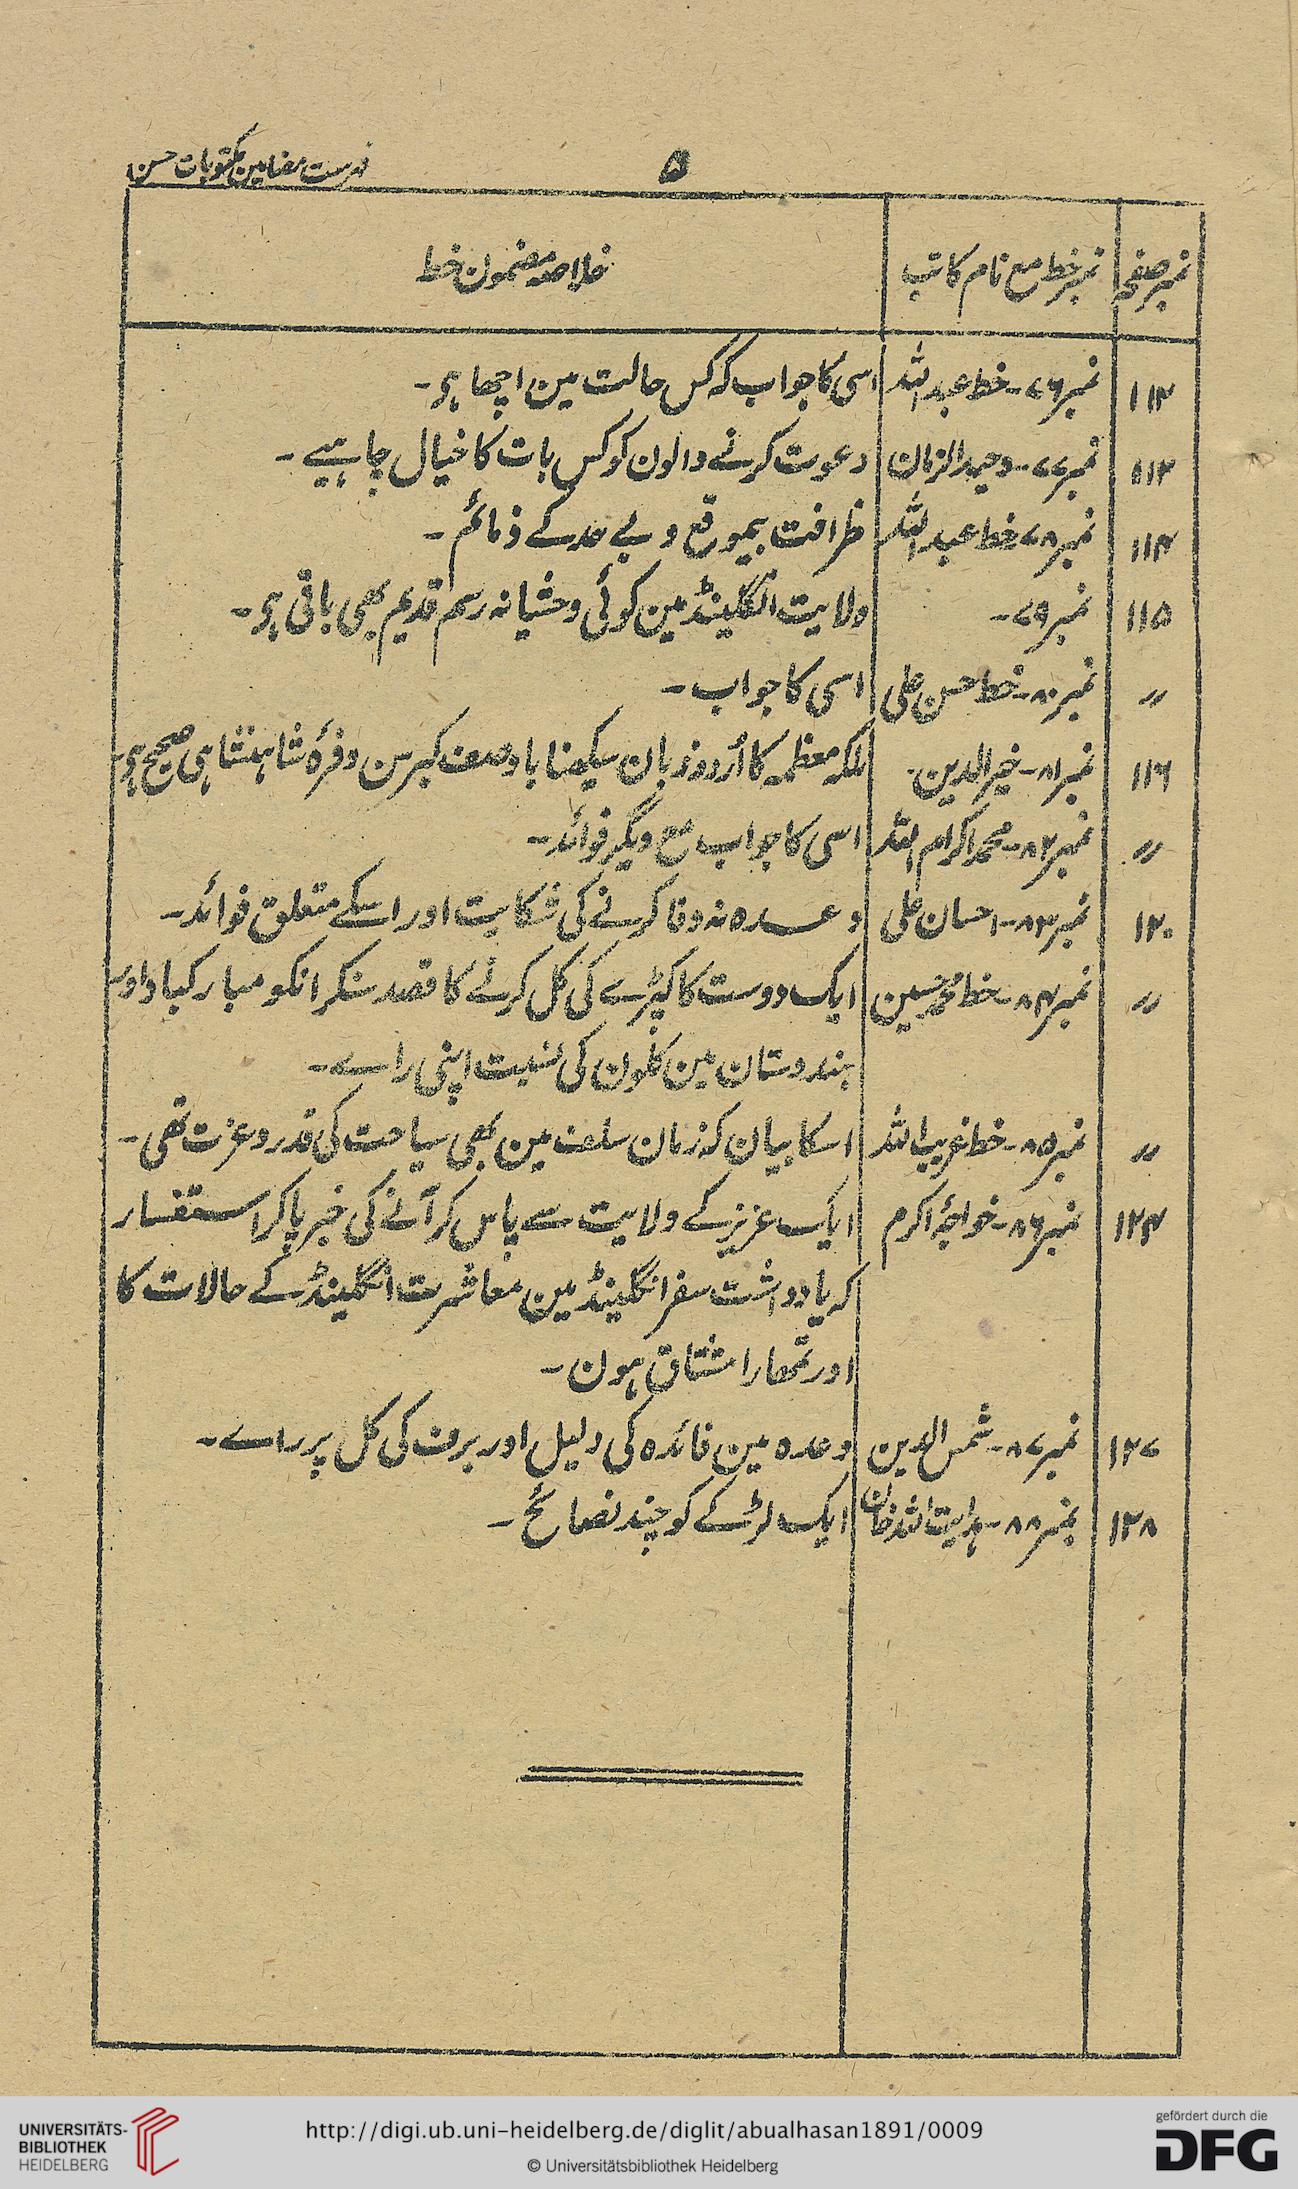 ۵
فہرست مضامین مکتوبات حسن
نمبر صفحہ | نمبر خط مع نام کاتب | خلاصہ مضمون خط
۱۱۳ | نمبر ۷۶۔ خط عبد اللہ | اسی کا جواب کہ کس حالت مین اچھا ہی۔
۱۱۳ | نمبر ۷۷۔ وحید الزمان | دعوت کرنے والون کو کس بات کا خیال چاہیے۔
۱۱۴ | نمبر ۷۸۔ خط عبد اللہ | ظرافت بیموقع و بے حد کے ذمائم۔
۱۱۵ | نمبر ۷۹۔ | ولایت انگلینڈ مین کوئی وحشیانہ رسم قدیم بھی باقی ہی۔
〃 | نمبر ۸۰۔ خط حسن علی | اسی کا جواب۔
۱۱۶ | نمبر ۸۱۔ خیر الدین۔ | ملکہ معظمہ کا اُردو زبان سیکھنا باوصف کبر سن و فرۂ شاہنشاہی صحیح ہی۔
〃 | نمبر ۸۲۔ محمد اکرام اللہ | اسی کا جواب مع دیگر فوائد۔
۱۲۰ | نمبر ۸۳۔ احسان علی | وعدہ نہ وفا کرنے کی شکایت اور اسکے متعلق فوائد۔
〃 | نمبر ۸۴۔ خط محمد حسین | ایک دوست کا کپڑے کی کل کرنے کا قصد سنکر انکو مبارکباد اور
ہندوستان مین کلون کی نسبت اپنی راے۔
〃 | نمبر ۸۵۔ خط غریب اللہ | اسکا بیان کہ زمان سلف مین بھی سیاحت کی قدر و عزت تھی۔
۱۲۴ | نمبر ۸۶۔ خواجۂ اکرم | ایک عزیز کے ولایت سے پاس کر آنے کی خبر پاکر استفسار
کہ یادداشت سفر انگلینڈ مین معاشرت انگلینڈ کے حالات کا
اور تمھارا مشتاق ہون۔
۱۲۷ | نمبر ۸۷۔ شمس الدین | وعدہ مین فائدہ کی دلیل اور برف کی کل پر راے۔
۱۲۸ | نمبر ۸۸۔ ہدایت اللہ خان | ایک لڑکے کو چند نصائح۔
UNIVERSITÄTS-
BIBLIOTHEK
HEIDELBERG
http://digi.ub.uni-heidelberg.de/diglit/abualhasan1891/0009
© Universitätsbibliothek Heidelberg
gefördert durch die
DFG